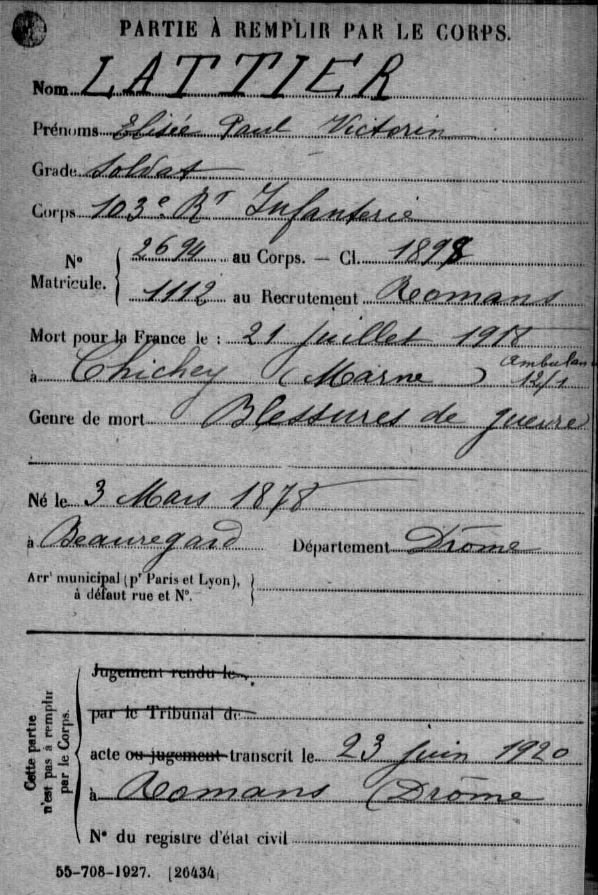 PARTIE À REMPLIR PAR LE CORPS.
Nom LATTIER
Prénoms Elisée Paul Victorin
Grade Soldat
Corps 103e Rt Infanterie
N° Matricule. { 2694 au Corps. — Cl. 1898
1112 au Recrutement Romans
Mort pour la France le : 21 juillet 1918
à Chichey (Marne) Ambulan 12/1
Genre de mort Blessures de guerre
Né le 3 Mars 1878
à Beauregard Département Drôme
Arrt municipal (pr Paris et Lyon), à défaut rue et N°.
Jugement rendu le
par le Tribunal de
acte ou jugement transcrit le 23 juin 1920
à Romans (Drôme
N° du registre d'état civil
Cette partie n'est pas à remplir par le Corps.
55-708-1927. [26434]